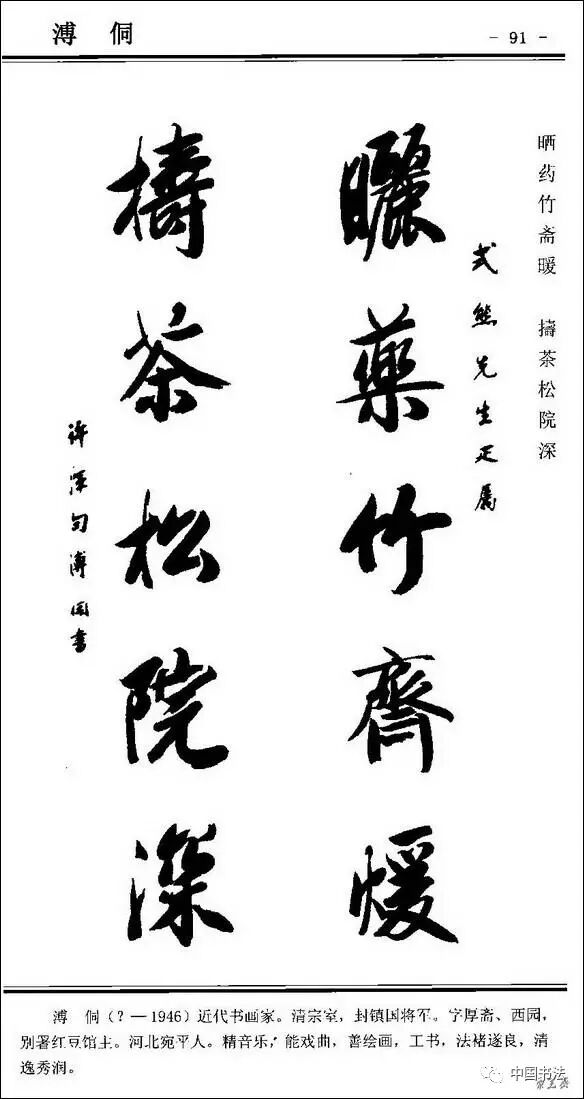 溥 侗
- 91 -
晒药竹斋暖 擣茶松院深
式熊先生正属
曬藥竹齋暖
擣茶松院深
許渾句溥侗書
溥 侗（？—1946）近代书画家。清宗室，封镇国将军。字厚斋、西园，
别署红豆馆主。河北宛平人。精音乐，能戏曲，善绘画，工书，法褚遂良，清
逸秀润。
中国书法